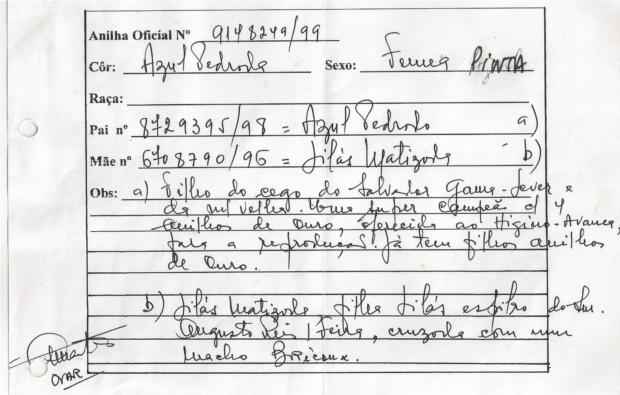 Anilha Oficial Nº 9148249/99
Côr: Azul Pedrada Sexo: Femea PINTA
Raça:
Pai nº 8729395/98 = Azul Pedrado a)
Mãe nº 6708790/96 = Lilás Matizada b)
Obs: a) Filho do cego do Salvador Gama-Sever e
da velha. Uma super campeã c/ 4
anilhas de Ouro, oferecida ao Higino-Avanca,
para a reprodução. Já tem filhos anilhas
de Ouro.
b) Lilás Matizada, filha Lilás do Sr.
Augusto Reis / Feira, cruzada com um
macho Bricoux.
OVAR